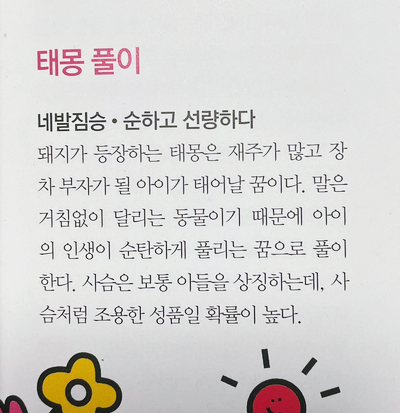 태몽 풀이
네발짐승 • 순하고 선량하다
돼지가 등장하는 태몽은 재주가 많고 장
차 부자가 될 아이가 태어날 꿈이다. 말은
거침없이 달리는 동물이기 때문에 아이
의 인생이 순탄하게 풀리는 꿈으로 풀이
한다. 사슴은 보통 아들을 상징하는데, 사
슴처럼 조용한 성품일 확률이 높다.